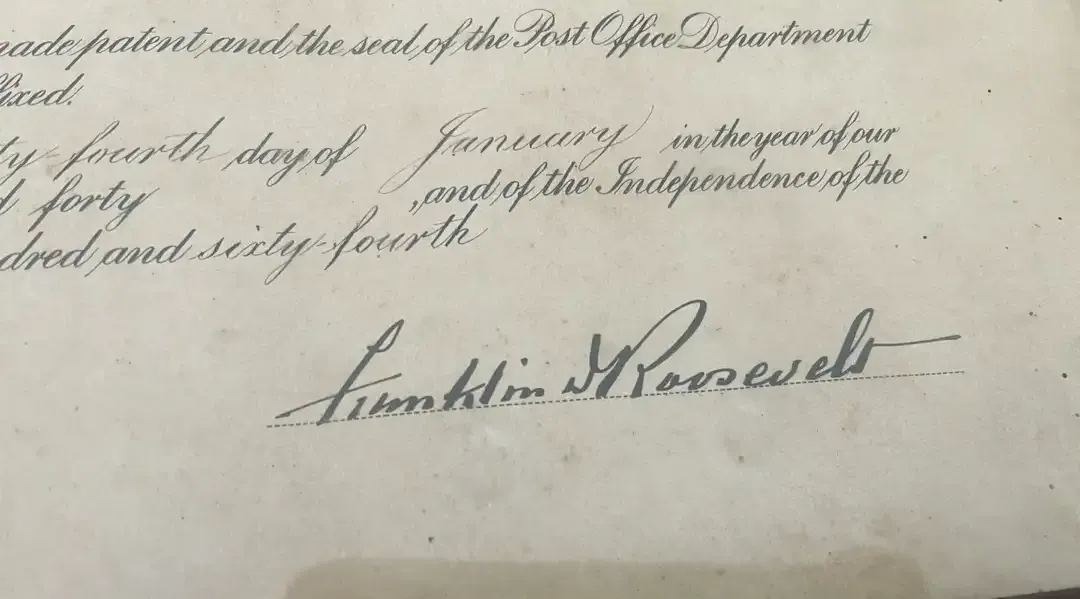 made patent and the seal of the Post Office Department
ffixed.
ty-fourth day of January in the year of our
d forty , and of the Independence of the
dred and sixty-fourth
Franklin D Roosevelt